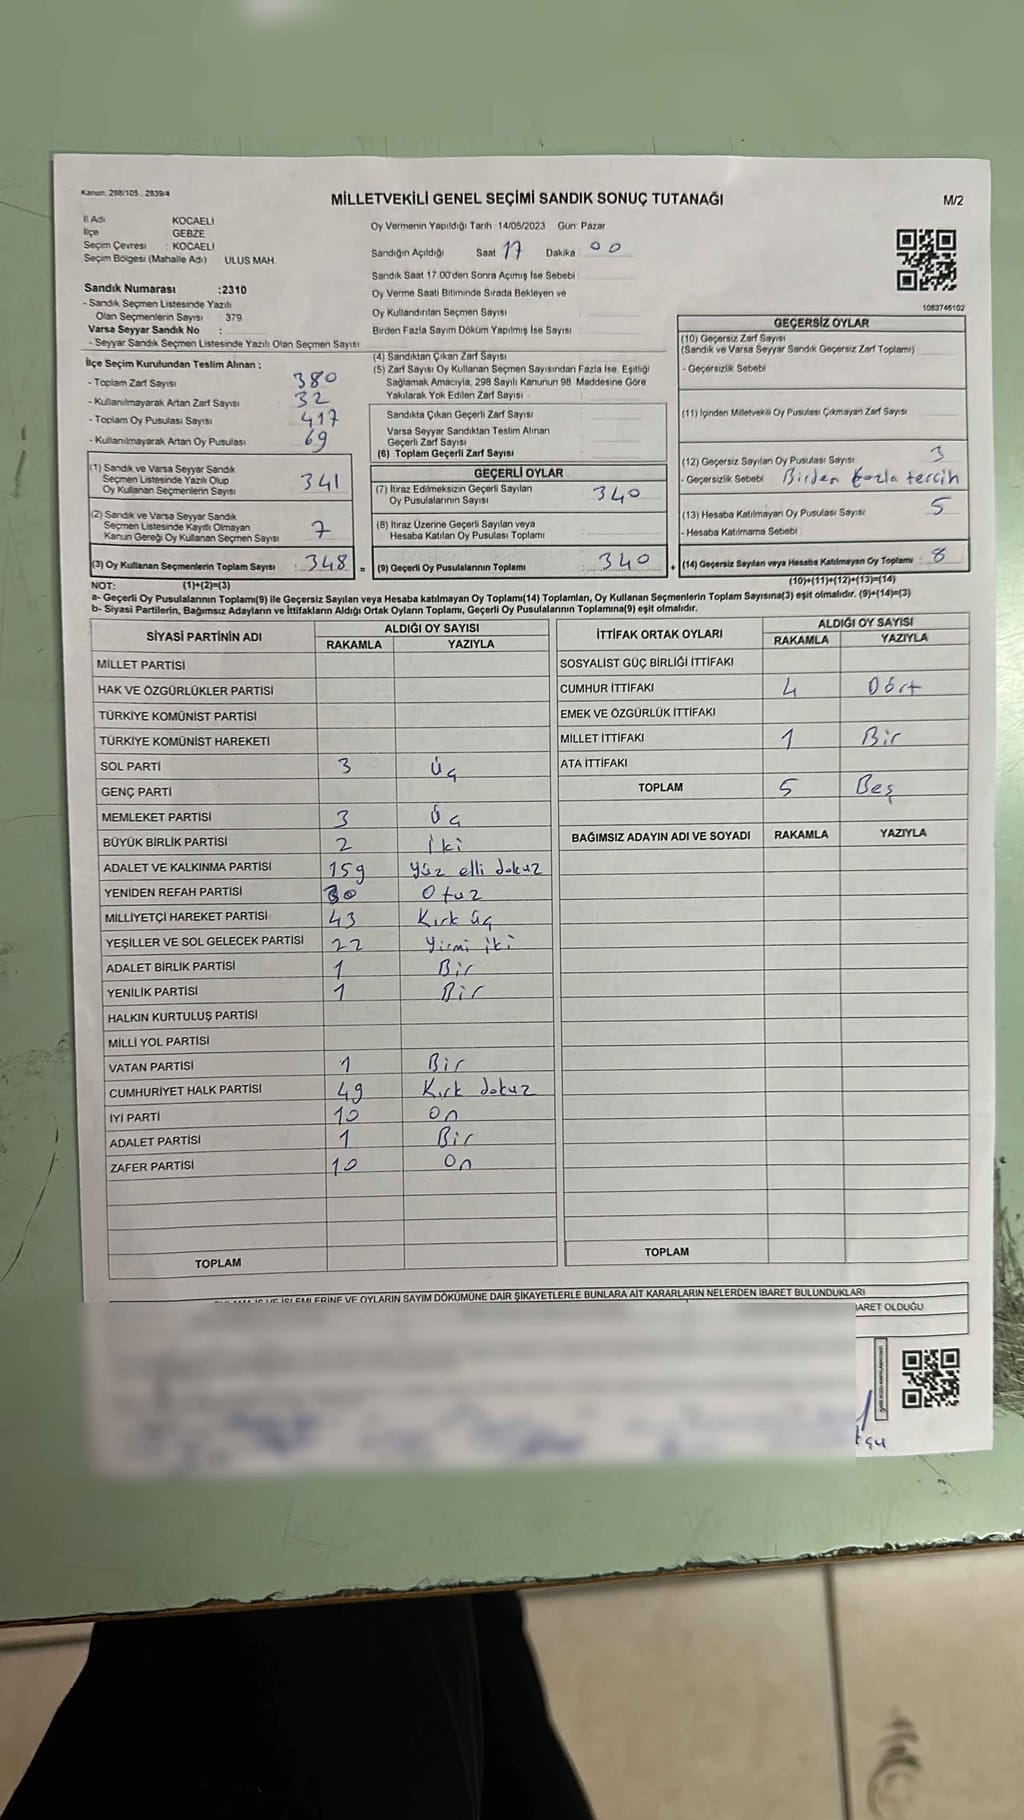 Kanun. 298/105 . 2839/4
MİLLETVEKİLİ GENEL SEÇİMİ SANDIK SONUÇ TUTANAĞI
M/2
İl Adı KOCAELİ
İlçe GEBZE
Seçim Çevresi : KOCAELİ
Seçim Bölgesi (Mahalle Adı) ULUS MAH.
Oy Vermenin Yapıldığı Tarih :14/05/2023 Gün: Pazar
Sandığın Açıldığı Saat 17 Dakika 00
Sandık Saat 17.00'den Sonra Açımış İse Sebebi
Oy Verme Saati Bitiminde Sırada Bekleyen ve
Oy Kullandırılan Seçmen Sayısı
Birden Fazla Sayım Döküm Yapılmış İse Sayısı
1083746102
Sandık Numarası :2310
- Sandık Seçmen Listesinde Yazılı
Olan Seçmenlerin Sayısı : 379
Varsa Seyyar Sandık No :
- Seyyar Sandık Seçmen Listesinde Yazılı Olan Seçmen Sayısı
İlçe Seçim Kurulundan Teslim Alınan :
- Toplam Zarf Sayısı 380
- Kullanılmayarak Artan Zarf Sayısı 32
- Toplam Oy Pusulası Sayısı 417
- Kullanılmayarak Artan Oy Pusulası 69
(1) Sandık ve Varsa Seyyar Sandık
Seçmen Listesinde Yazılı Olup
Oy Kullanan Seçmenlerin Sayısı 341
(2) Sandık ve Varsa Seyyar Sandık
Seçmen Listesinde Kayıtlı Olmayan
Kanun Gereği Oy Kullanan Seçmen Sayısı 7
(3) Oy Kullanan Seçmenlerin Toplam Sayısı : 348 =
(4) Sandıktan Çıkan Zarf Sayısı
(5) Zarf Sayısı Oy Kullanan Seçmen Sayısından Fazla İse, Eşitliği
Sağlamak Amacıyla, 298 Sayılı Kanunun 98. Maddesine Göre
Yakılarak Yok Edilen Zarf Sayısı
Sandıkta Çıkan Geçerli Zarf Sayısı
Varsa Seyyar Sandıktan Teslim Alınan
Geçerli Zarf Sayısı
(6) Toplam Geçerli Zarf Sayısı
GEÇERLİ OYLAR
(7) İtiraz Edilmeksizin Geçerli Sayılan
Oy Pusulalarının Sayısı 340
(8) İtiraz Üzerine Geçerli Sayılan veya
Hesaba Katılan Oy Pusulası Toplamı
(9) Geçerli Oy Pusulalarının Toplamı : 340 +
GEÇERSİZ OYLAR
(10) Geçersiz Zarf Sayısı
(Sandık ve Varsa Seyyar Sandık Geçersiz Zarf Toplamı)
- Geçersizlik Sebebi
(11) İçinden Milletvekili Oy Pusulası Çıkmayan Zarf Sayısı
(12) Geçersiz Sayılan Oy Pusulası Sayısı 3
- Geçersizlik Sebebi Birden fazla tercih
(13) Hesaba Katılmayan Oy Pusulası Sayısı 5
- Hesaba Katılmama Sebebi
(14) Geçersiz Sayılan veya Hesaba Katılmayan Oy Toplamı : 8
NOT: (1)+(2)=(3)
(10)+(11)+(12)+(13)=(14)
a- Geçerli Oy Pusulalarının Toplamı(9) ile Geçersiz Sayılan veya Hesaba katılmayan Oy Toplamı(14) Toplamları, Oy Kullanan Seçmenlerin Toplam Sayısına(3) eşit olmalıdır. (9)+(14)=(3)
b- Siyasi Partilerin, Bağımsız Adayların ve İttifakların Aldığı Ortak Oyların Toplamı, Geçerli Oy Pusulalarının Toplamına(9) eşit olmalıdır.
SİYASİ PARTİNİN ADI ALDIĞI OY SAYISI
RAKAMLA YAZIYLA
MİLLET PARTİSİ
HAK VE ÖZGÜRLÜKLER PARTİSİ
TÜRKİYE KOMÜNİST PARTİSİ
TÜRKİYE KOMÜNİST HAREKETİ
SOL PARTİ 3 Üç
GENÇ PARTİ
MEMLEKET PARTİSİ 3 Üç
BÜYÜK BİRLİK PARTİSİ 2 İki
ADALET VE KALKINMA PARTİSİ 159 Yüz elli dokuz
YENİDEN REFAH PARTİSİ 30 Otuz
MİLLİYETÇİ HAREKET PARTİSİ 43 Kırk üç
YEŞİLLER VE SOL GELECEK PARTİSİ 22 Yirmi iki
ADALET BİRLİK PARTİSİ 1 Bir
YENİLİK PARTİSİ 1 Bir
HALKIN KURTULUŞ PARTİSİ
MİLLİ YOL PARTİSİ
VATAN PARTİSİ 1 Bir
CUMHURİYET HALK PARTİSİ 49 Kırk dokuz
İYİ PARTİ 10 On
ADALET PARTİSİ 1 Bir
ZAFER PARTİSİ 10 On
TOPLAM
İTTİFAK ORTAK OYLARI ALDIĞI OY SAYISI
RAKAMLA YAZIYLA
SOSYALİST GÜÇ BİRLİĞİ İTTİFAKI
CUMHUR İTTİFAKI 4 Dört
EMEK VE ÖZGÜRLÜK İTTİFAKI
MİLLET İTTİFAKI 1 Bir
ATA İTTİFAKI
TOPLAM 5 Beş
BAĞIMSIZ ADAYIN ADI VE SOYADI RAKAMLA YAZIYLA
TOPLAM
İŞLEMLERİNE VE OYLARIN SAYIM DÖKÜMÜNE DAİR ŞİKAYETLERLE BUNLARA AİT KARARLARIN NELERDEN İBARET BULUNDUKLARI
İBARET OLDUĞU